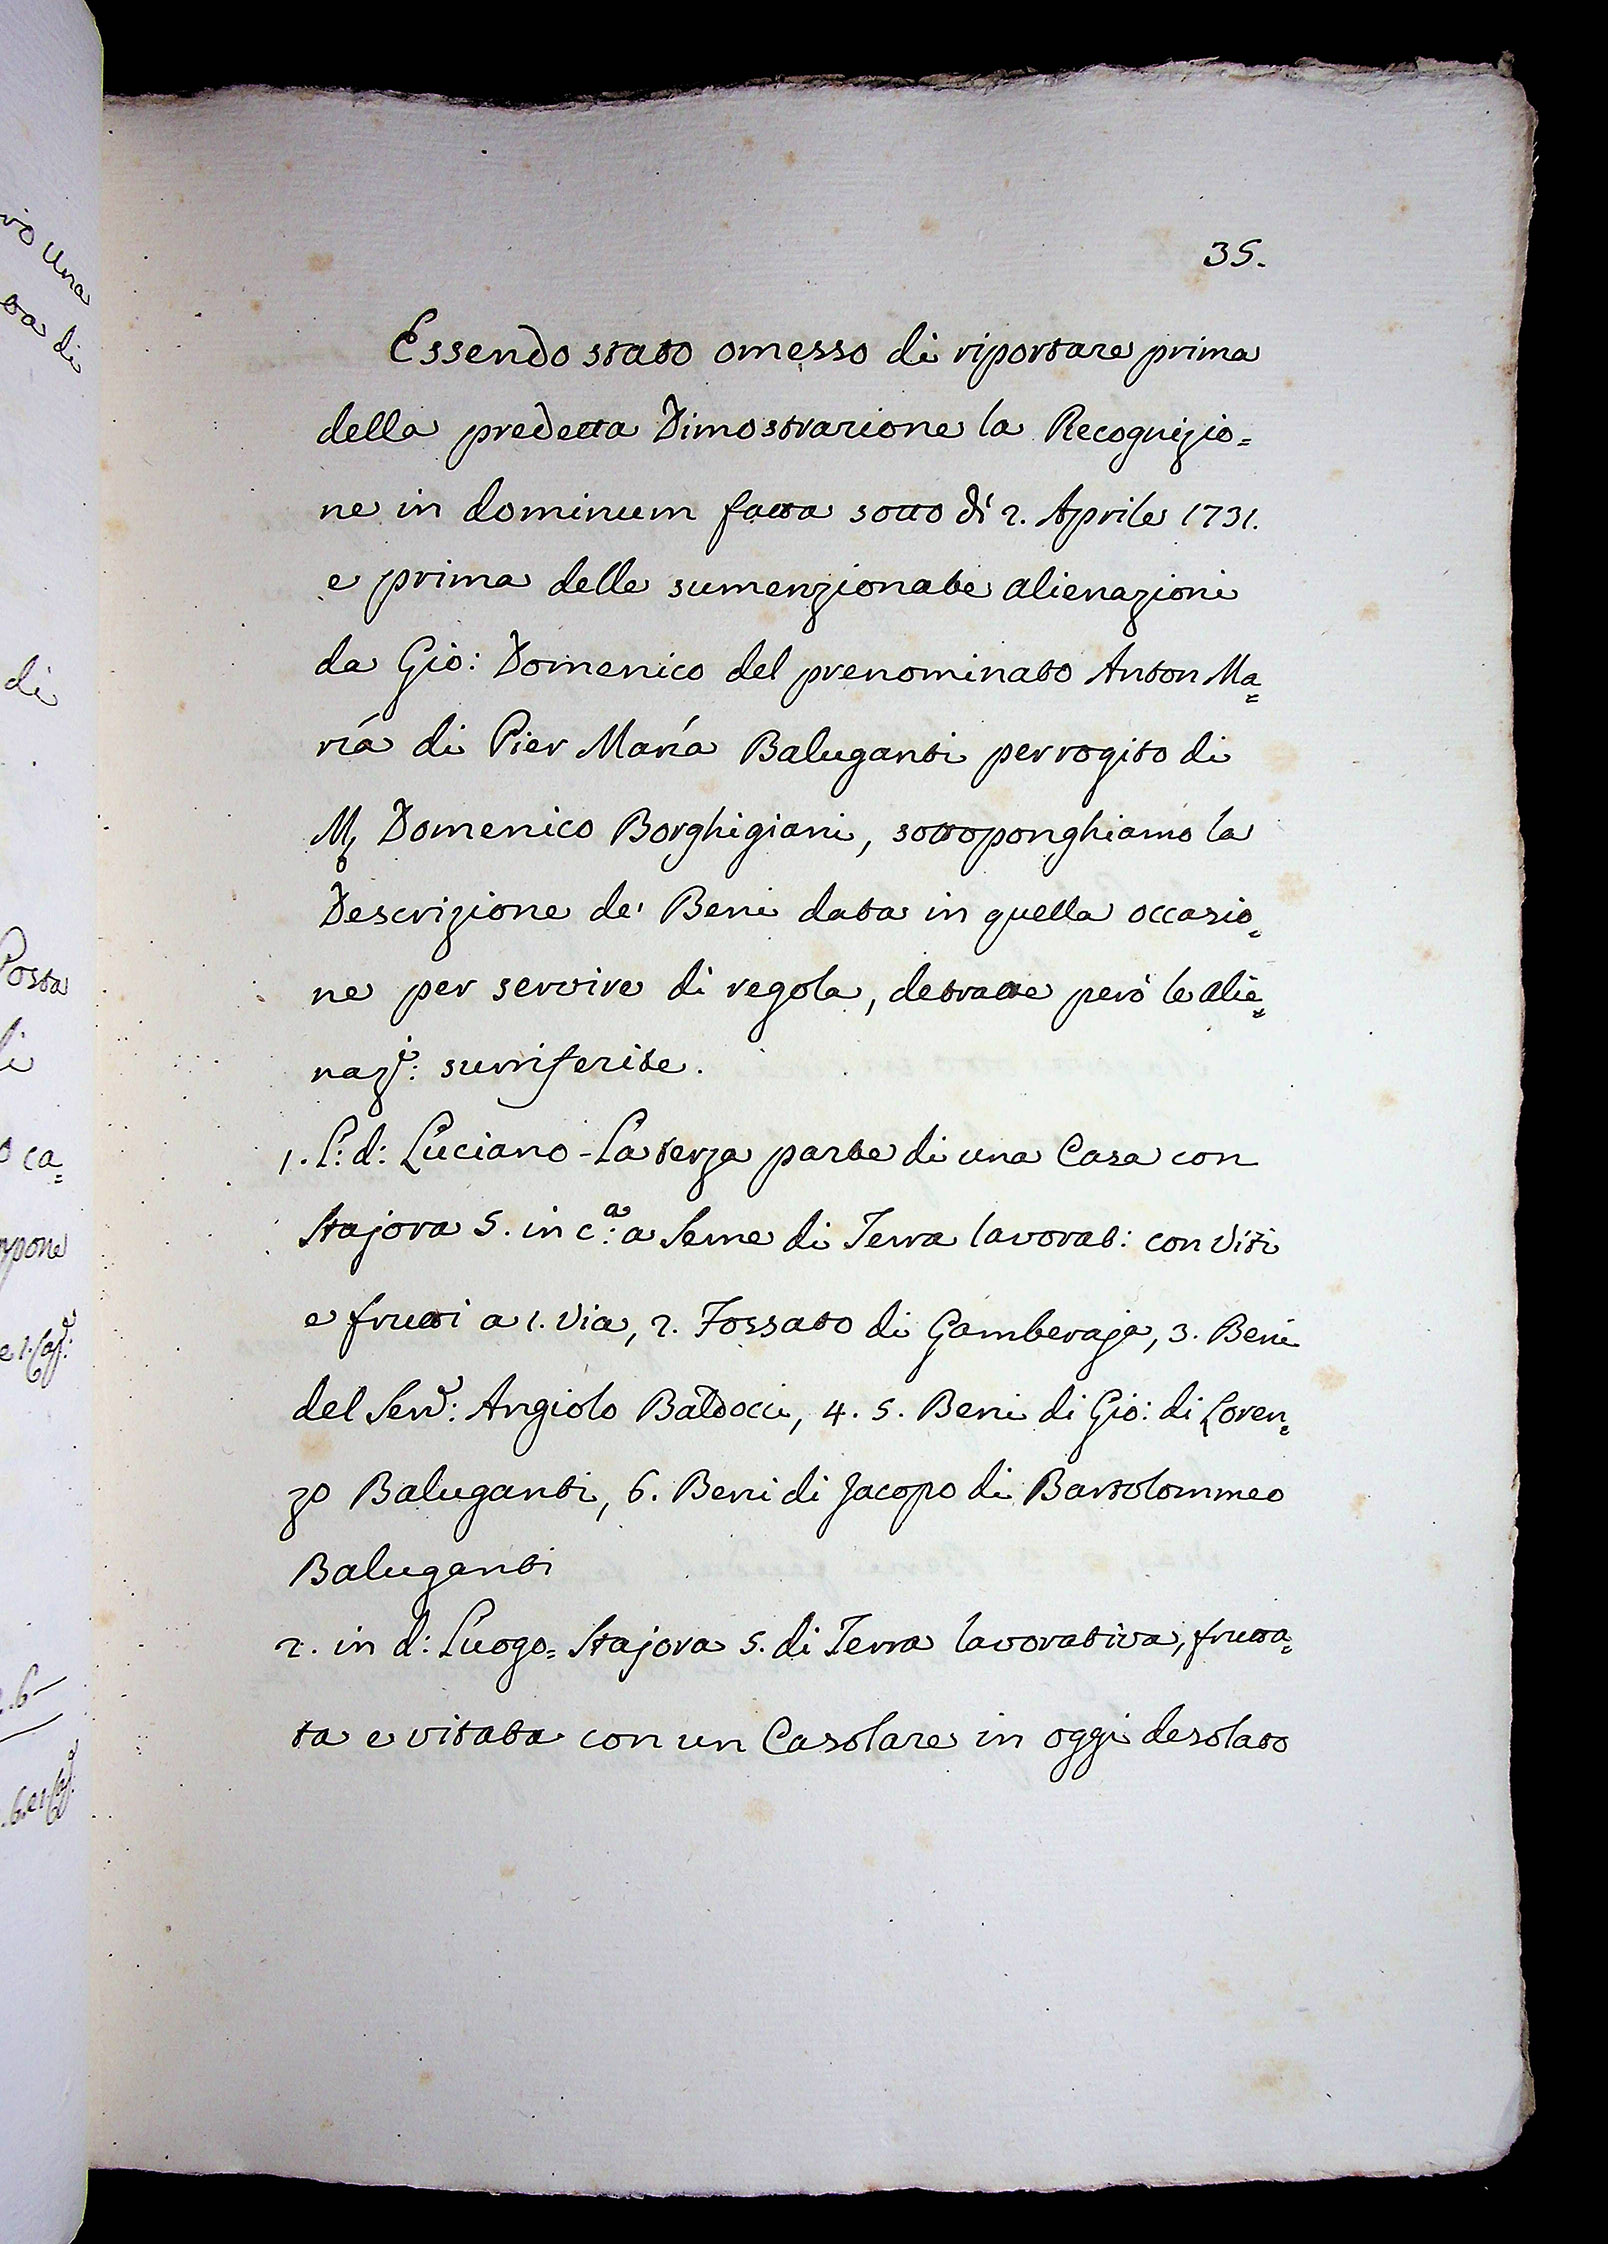 35.
Essendo stato omesso di riportare prima
della predetta Dimostrazione la Recognizio=
ne in dominum fatta sotto dì 2. Aprile 1731.
e prima delle sumenzionate alienazioni
da Gio: Domenico del prenominato Anton Ma=
ria di Pier Maria Baluganti per rogito di
Domenico Borghigiani, sottoponghiamo la
Descrizione de' Beni data in quella occasio=
ne per servire di regola, detratte però le alie=
naz.i: surriferite.
1. L: d: Luciano - La terza parte di una Casa con
Stajora 5. in c.a: a Seme di Terra lavorat: con Viti
e frutti a 1. Via, 2. Fossato di Gamberaja, 3. Beni
del Sen.e: Angiolo Baldocci, 4. 5. Beni di Gio: di Loren=
zo Baluganti, 6. Beni di Jacopo di Bartolommeo
Baluganti
2. in d: Luogo= Stajora 5. di Terra lavorativa, frutta=
ta e vitata con un Casolare in oggi desolato
vo una
va di
di
Posta
li
ca=
pone